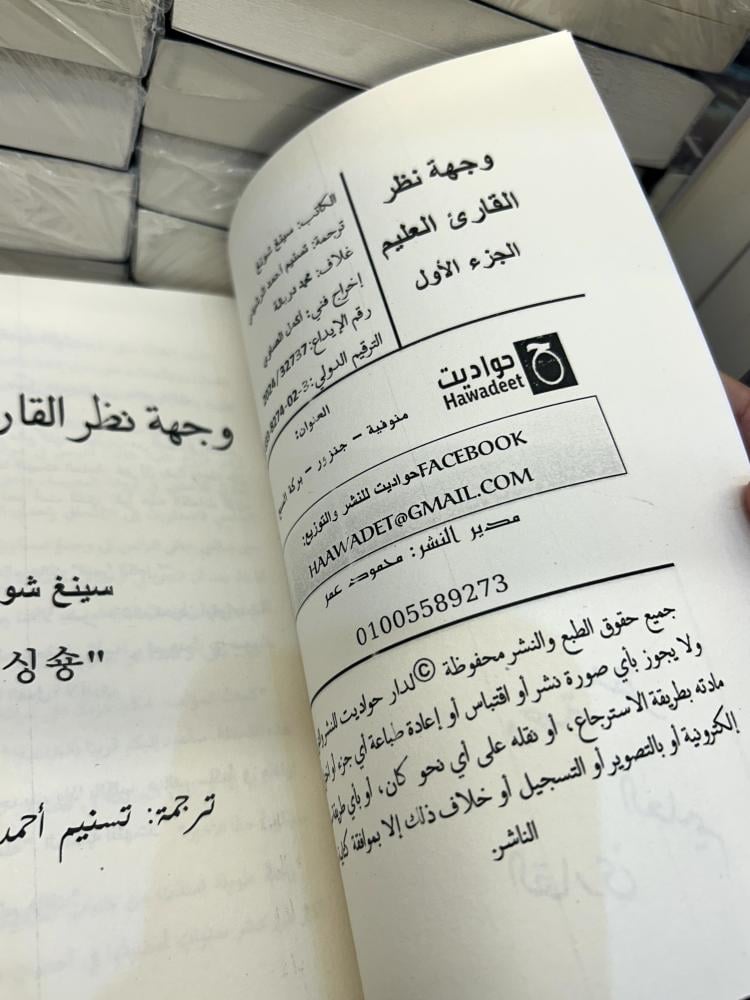 وجهة نظر
القارئ العليم
الجزء الأول
الكاتب: سينغ شونغ
ترجمة: تسنيم أحمد
غلاف: محمد دربالة
إخراج فني: أكمل
رقم الإيداع: 2024/32737
الترقيم الدولي: 8274-02-3
حواديت
Hawadeet
العنوان:
منوفية – جنزور – بركة
حواديت للنشر والتوزيع: FACEBOOK
HAAWADET@GMAIL.COM
مدير النشر: محمود عمر
01005589273
جميع حقوق الطبع والنشر محفوظة © لدار حواديت للنشر
ولا يجوز بأي صورة نشر أو اقتباس أو إعادة طباعة أي جزء أو
مادته بطريقة الاسترجاع، أو نقله على أي نحو كان، أو بأي طريقة
إلكترونية أو بالتصوير أو التسجيل أو خلاف ذلك إلا بموافقة
الناشر.
وجهة نظر
سينغ
싱숑"
ترجمة: تسنيم أحمد